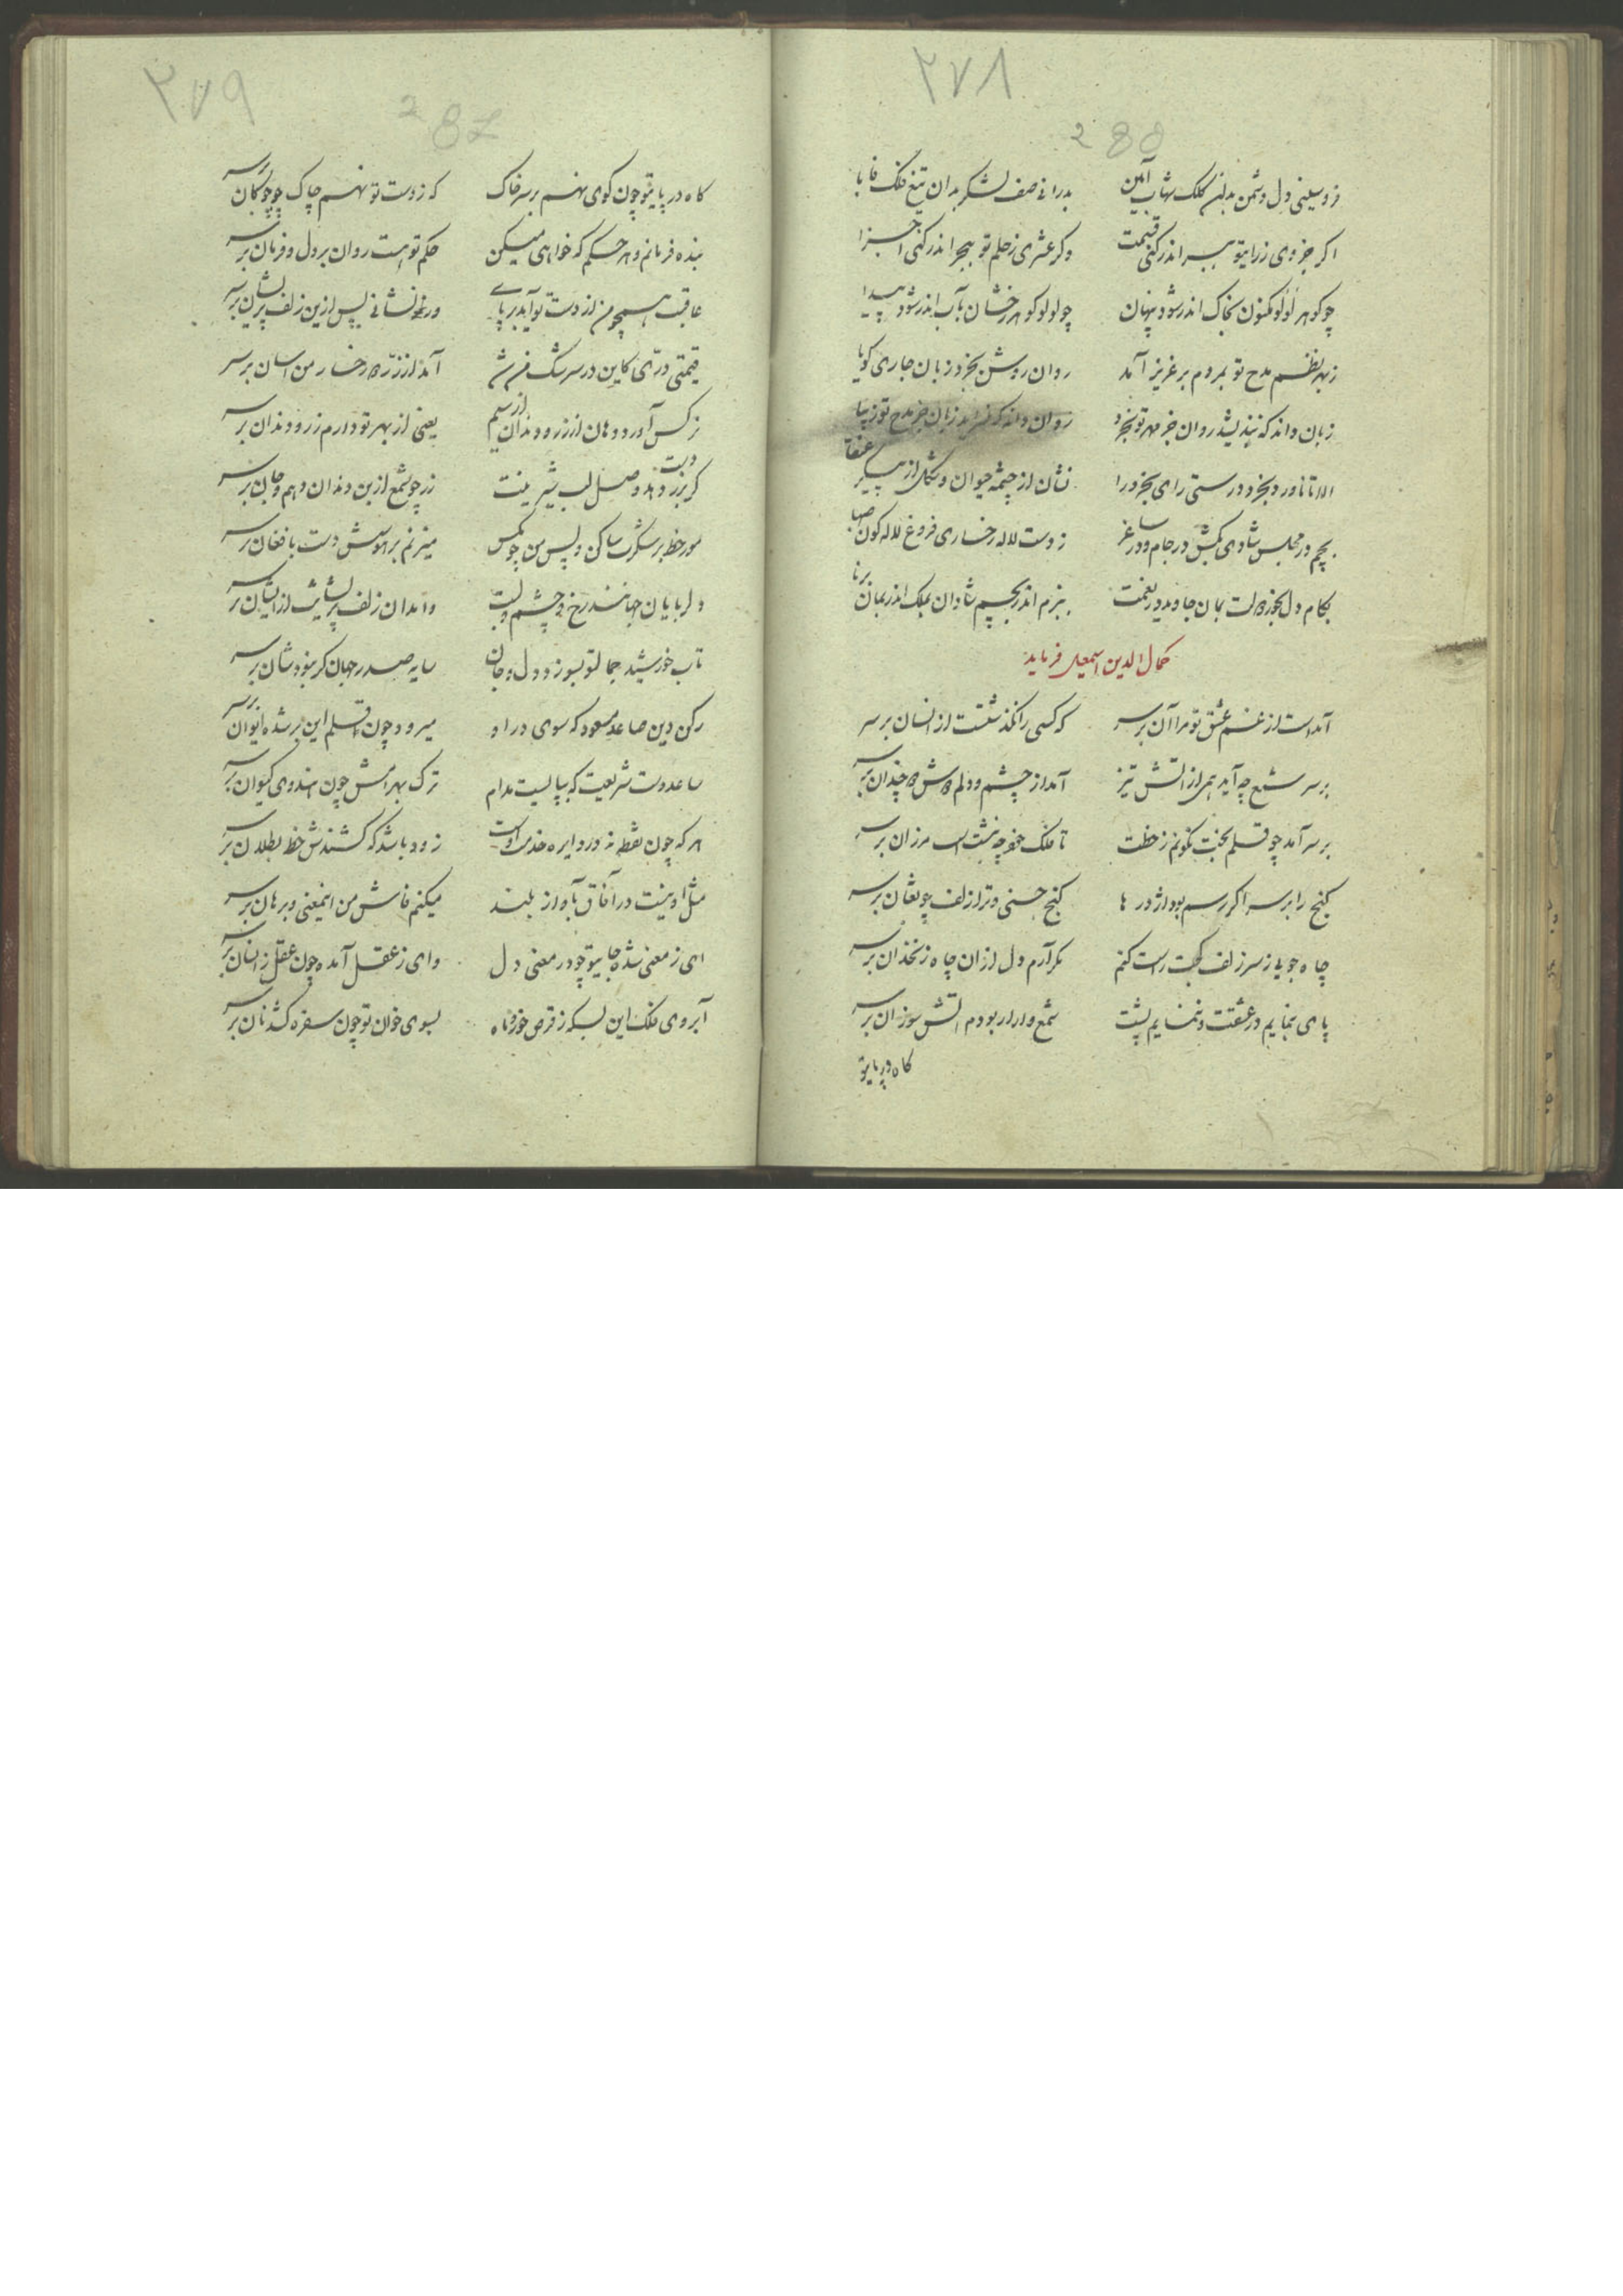 ۲۷۸
280
فرو سینی دل دشمن بدین کلک شهاب آیین بدرانی صف لشکر بدان تیغ فلک فابا
اگر جزوی زرایتو ببر اندر کنی قیمت وگر عشری زحلم تو ببحر اندر کنی اجزا
چو کوهر لؤلؤ مکنون بخاک اندر شود پنهان چو لولو کوهر رخشان بآب اندر شود پیدا
زبهر نظم مدح تو بمردم بر عزیز آمد روان روشن بخرد زبان جاری کویا
زبان داند که نندیشد روان جز مهر تو بخرد روان داند که زبان جز مدح تو زیبا
الا تا ناورد بخرد درستی رای بخرد را نشان از چشمه حیوان و شکل از پیکر عنقا
بچم در مجلس شادی بکش در جام و در ساغر ز دست لاله رخساری فروغ لاله کون صهبا
بکام دل بجز دولت بمان جاوید در نعمت ببزم اندر بچم شادان بملک اندر بمان برنا
کمال الدین اسمعیل فرماید
آمدست از غم عشق تو مرا آن برسر که کسی را نگذشتست از انسان برسر
برسر شمع چه آید همی از آتش تیز آمد از چشم و دلم چندان برسر
برسر آمد چو قلم بخت نکونم زخطت تا فلک خود چه نبشتست مرزان برسر
کنج را برسر اکر رسم بود اژدرها کنج حسنی و ترا زلف چو ثعبان برسر
چاه جویان زسر زلف کجت راست کنم مکر آرم دل ازان چاه زنخدان برسر
پای بنمایم در عشقت و ننمایم پشت شمع وار ار بودم آتش سوزان برسر
کاه در پایتو
۲۷۹
282
کاه در پایتو چون کوی نهم برسر خاک که زدست تو نهم چاک چو چوکان برسر
بنده فرمانم و هر حکم که خواهی میکن حکم تو هست روان بر دل و فرمان برسر
عاقبت همچو من از دست تو آید برپای ور نشانی پس ازین زلف پریشان برسر
قیمتی دری کاین در سرشک من آمد از زر رخسار من اسان برسر
نرکس آورد دهان از زر و دندان از سیم یعنی از بهر تو دارم زر و دندان برسر
کر بزر دست دهد وصل لب شیرینت زر چو شمع از بن دندان دهم و جان برسر
مور خط برشکرت ساکن و پس من چو مکس میزنم بر هوسش دست بافغان برسر
دلربایان جهانند رخ و چشم و لبت و امد ان زلف پریشانت از ایشان برسر
تاب خورشید جمالتو بسوزد دل و جان سایه صدر جهان کر نبودشان برسر
رکن دین صاعد مسعود که سوی در او میرود چون قلم این برشده ایوان برسر
ساعد دست شریعت که بپا لیست مدام ترک بهرامش چون هندوی کیوان برسر
هر که چون نقطه نه در دایره خدمت اوست زود باشد که کشندش خط بطلان برسر
مثل او نیست در آفاق بآواز بلند میکنم فاش من اینمعنی و برهان برسر
ای ز معنی شده جانیتو چو در معنی دل وای ز عقل آمده چون عقل زانسان برسر
آبروی فلک این بسکه ز قرص خور و ماه بسوی خوان تو چون سفره کشد نان برسر